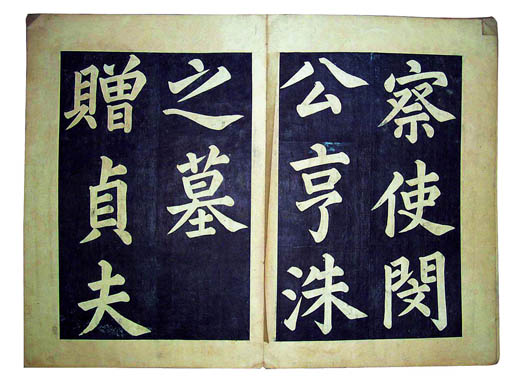 察使閔
公亨洙
之墓
贈貞夫